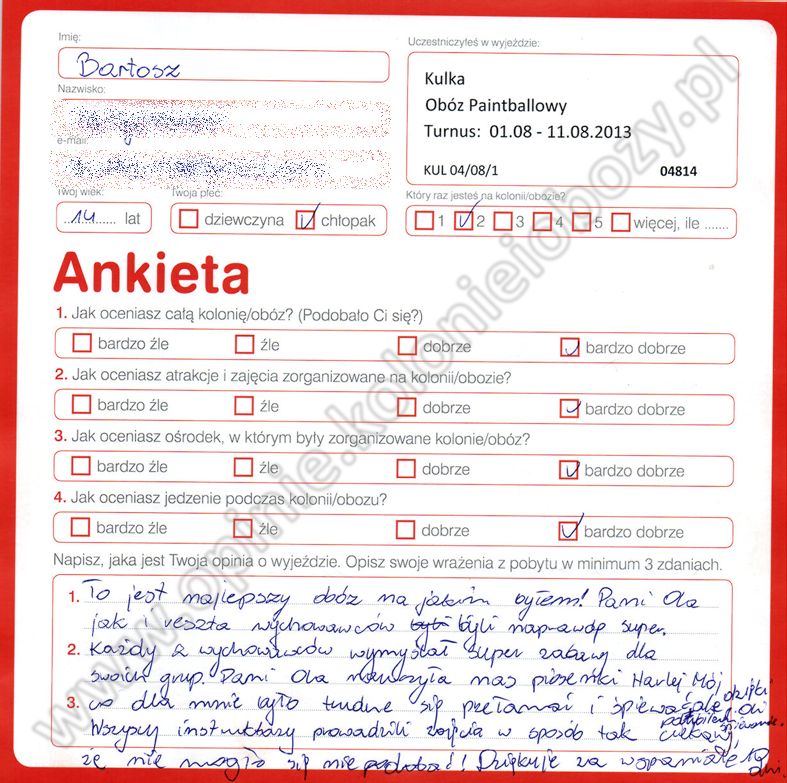 Imię:
Bartosz
Nazwisko:
e-mail:
Twój wiek:
14 lat
Twoja płeć:
dziewczyna chłopak
Uczestniczyłeś w wyjeździe:
Kulka
Obóz Paintballowy
Turnus: 01.08 - 11.08.2013
KUL 04/08/1 04814
Który raz jesteś na kolonii/obozie?
1 2 3 4 5 więcej, ile .......
Ankieta
1. Jak oceniasz całą kolonię/obóz? (Podobało Ci się?)
bardzo źle źle dobrze bardzo dobrze
2. Jak oceniasz atrakcje i zajęcia zorganizowane na kolonii/obozie?
bardzo źle źle dobrze bardzo dobrze
3. Jak oceniasz ośrodek, w którym były zorganizowane kolonie/obóz?
bardzo źle źle dobrze bardzo dobrze
4. Jak oceniasz jedzenie podczas kolonii/obozu?
bardzo źle źle dobrze bardzo dobrze
Napisz, jaka jest Twoja opinia o wyjeździe. Opisz swoje wrażenia z pobytu w minimum 3 zdaniach.
1. To jest najlepszy obóz na jakim byłem! Pani Ola
jak i reszta wychowawców byli byli naprawdę super.
2. Każdy z wychowawców wymyślał super zabawy dla
swoich grup. Pani Ola nauczyła nas piosenki Harlej Mój
3. co dla mnie było trudne się przełamać i śpiewać ale dzięki Oli
polubiłem śpiewanie.
Wszyscy instruktorzy prowadzili zajęcia w sposób tak ciekawy,
że nie mogło się nie podobać! Dziękuje za wspaniałe 10
dni.
www.opinie.kolonieiobozy.pl